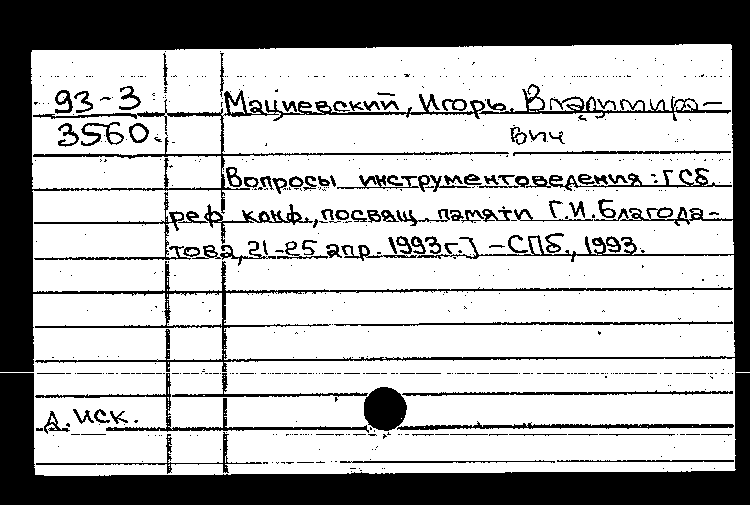 93-3
3560.
Мациевский, Игорь. Владимиро-
вич
Вопросы инструментоведения: [Сб.
реф. конф., посвящ. памяти Г.И.Благода-
това, 21-25 апр. 1993г.] -СПб., 1993.
д. иск.